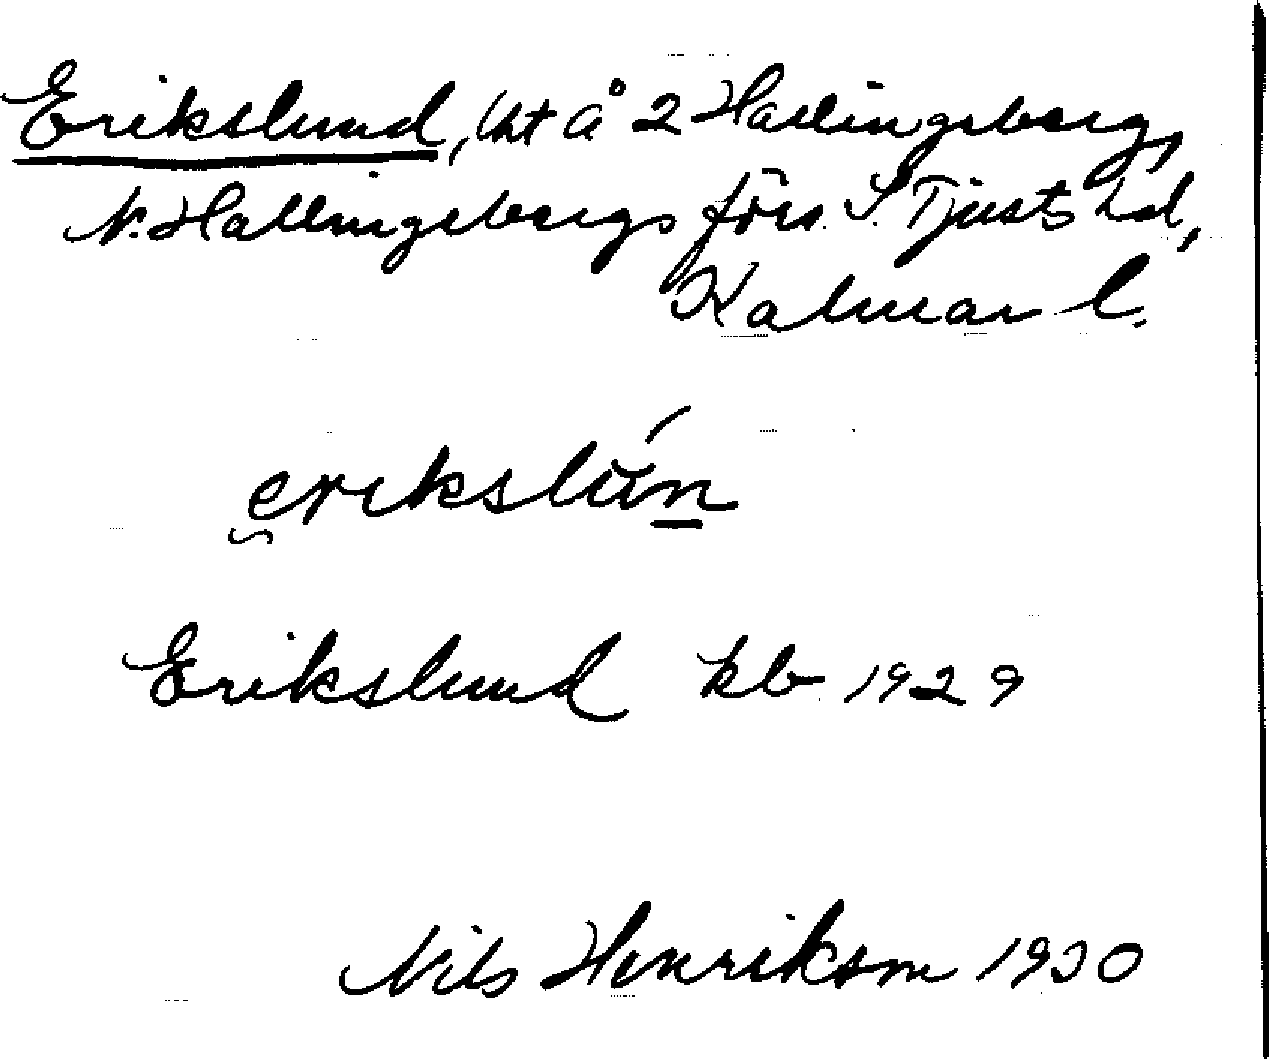 Erikslund, lht å 2 Hallingeberg,
N. Hallingebergs förs. S. Tjusts hd,
Kalmar l.
erikslún
Erikslund kb 1929
Nils Henrikson 1930